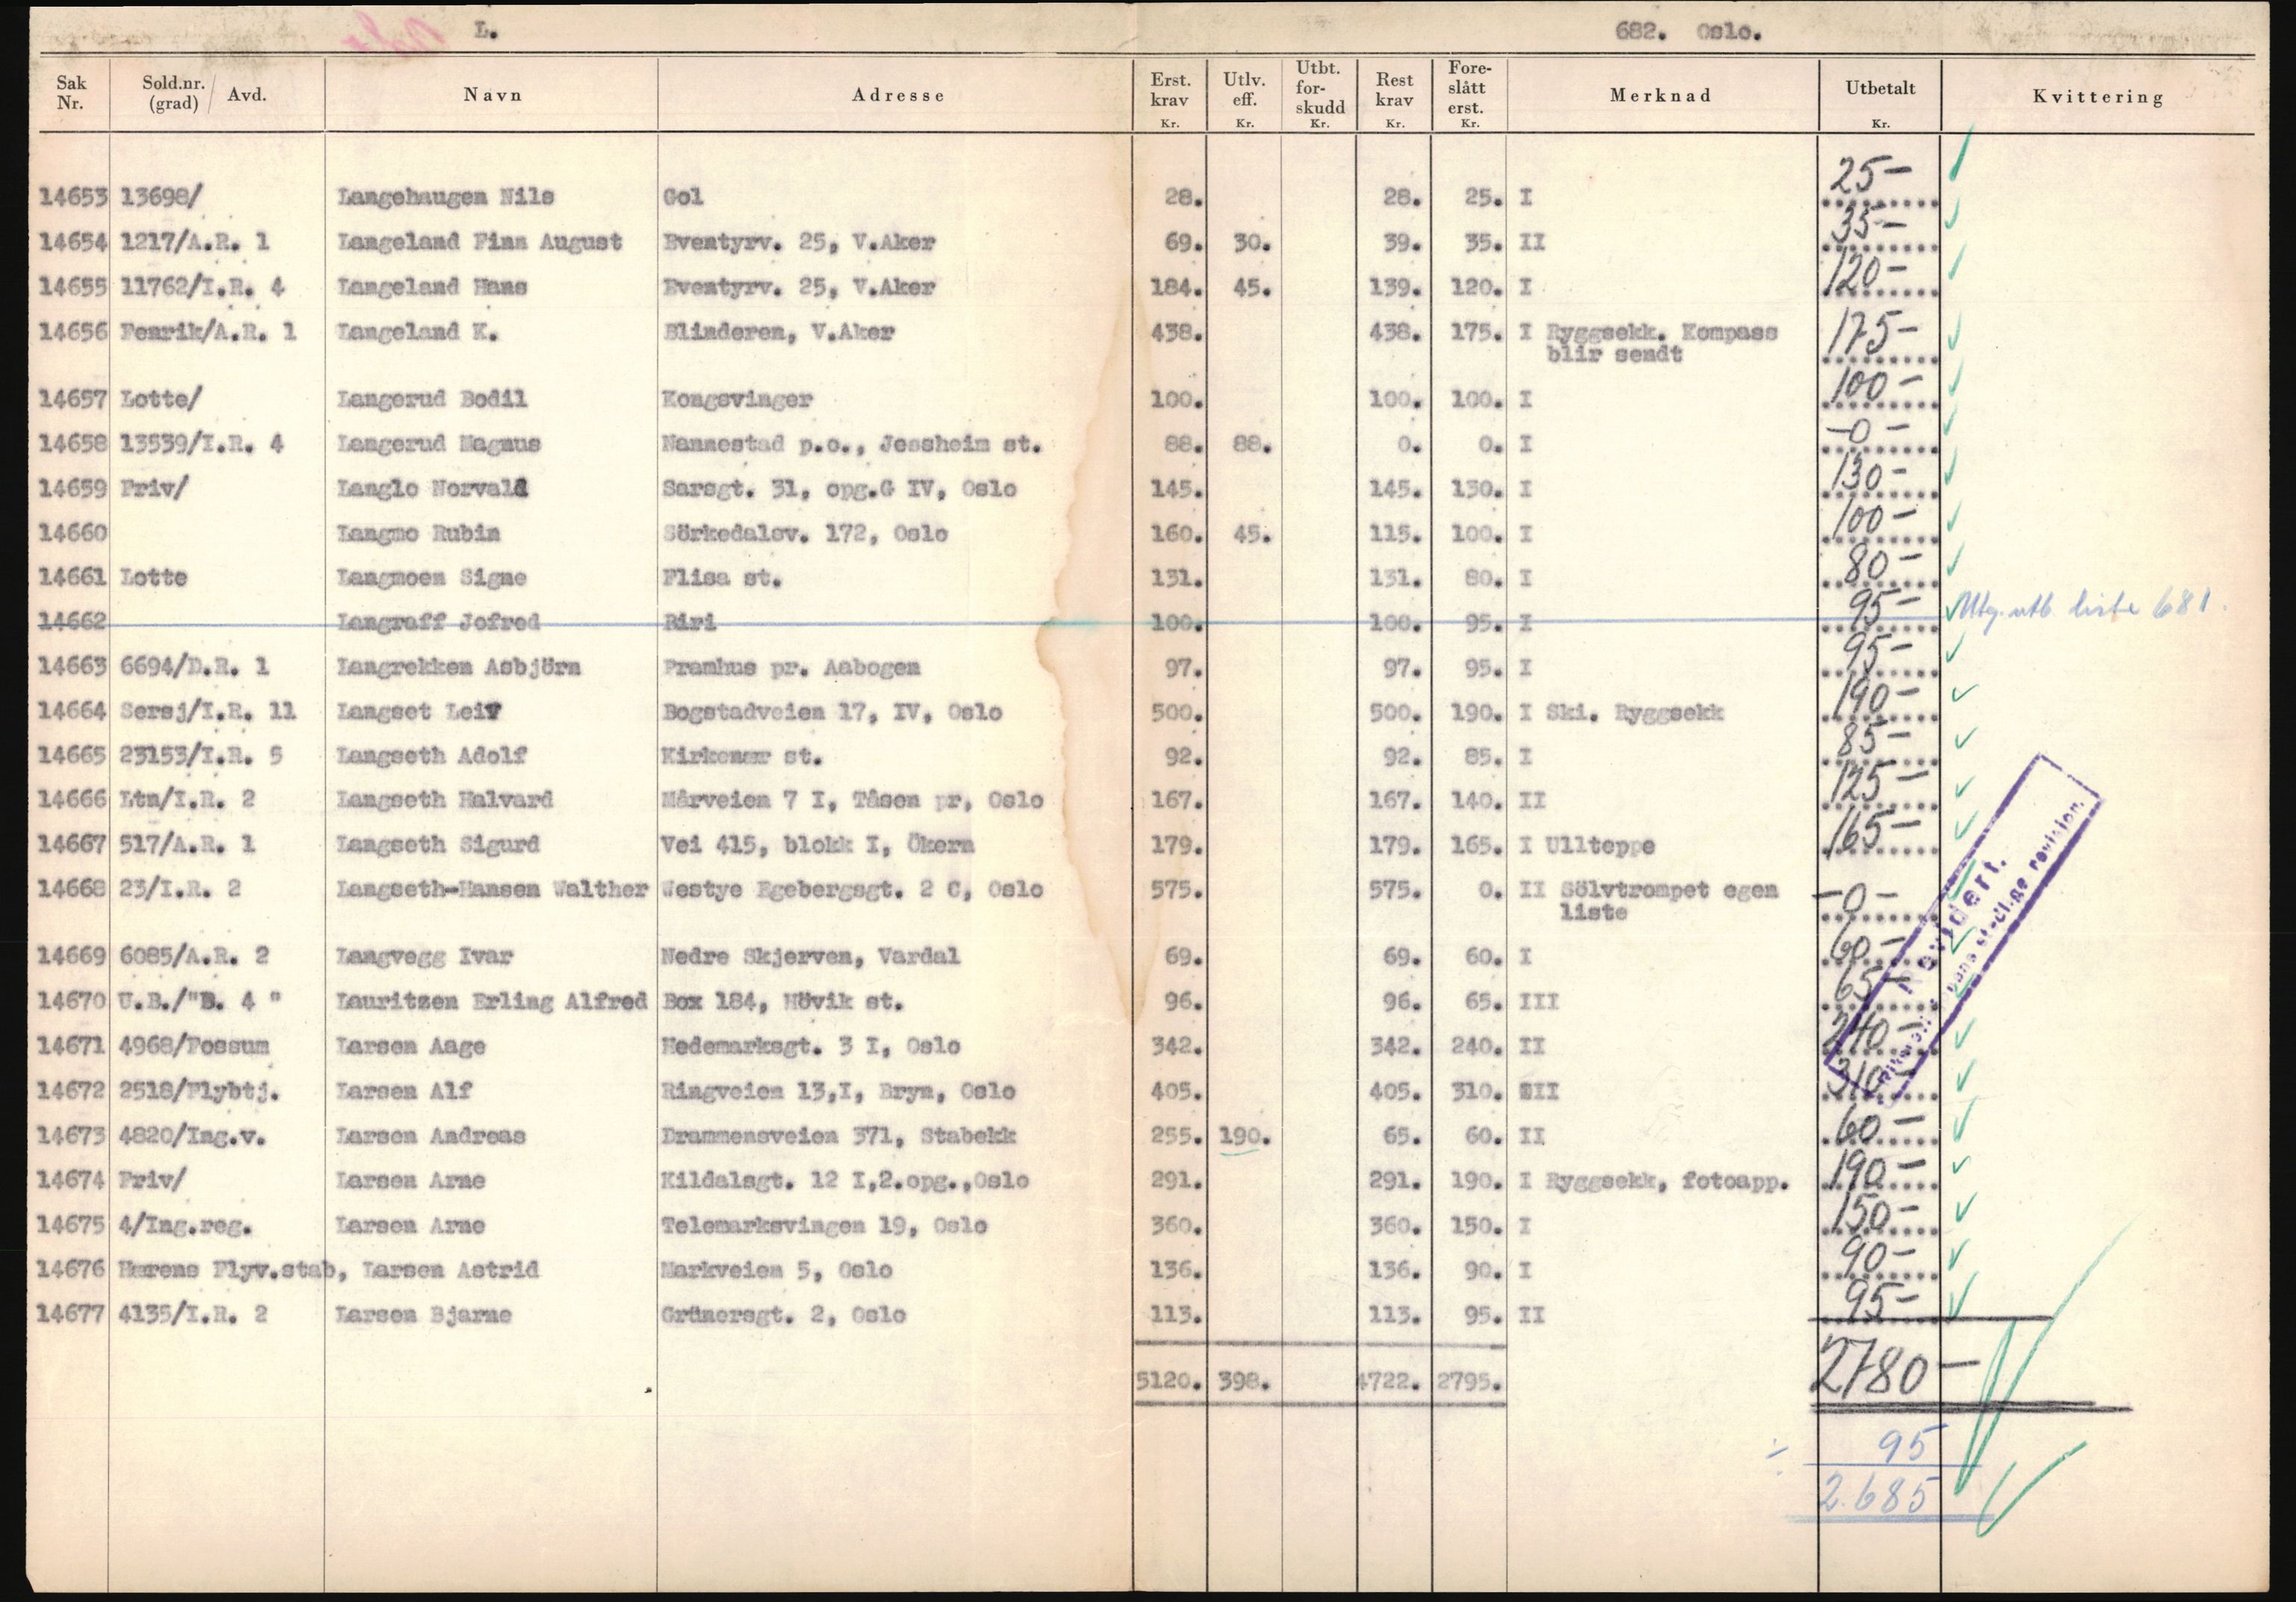 L. 682. Oslo.
Sak Nr. Sold.nr. (grad) / Avd. Navn Adresse Erst. krav Kr. Utlv. eff. Kr. Utbt. for- skudd Kr. Rest krav Kr. Fore- slått erst. Kr. Merknad Utbetalt Kr. Kvittering
14653 13698/ Langehaugen Nils Gol 28. 28. 25. I 25-
14654 1217/A.R. 1 Langeland Finn August Eventyrv. 25, V.Aker 69. 30. 39. 35. II 35-
14655 11762/I.R. 4 Langeland Hans Eventyrv. 25, V.Aker 184. 45. 139. 120. I 120-
14656 Fenrik/A.R. 1 Langeland K. Blinderen, V.Aker 438. 438. 175. I Ryggsekk. Kompass 175-
blir sendt
14657 Lotte/ Langerud Bodil Kongsvinger 100. 100. 100. I 100-
14658 13539/I.R. 4 Langerud Magnus Nannestad p.o., Jessheim st. 88. 88. 0. 0. I -0-
14659 Priv/ Langlo Norvald Sarsgt. 31, opg.G IV, Oslo 145. 145. 130. I 130-
14660 Langmo Rubin Sörkedalsv. 172, Oslo 160. 45. 115. 100. I 100-
14661 Lotte Langmoen Signe Flisa st. 131. 131. 80. I 80-
14662 Langraff Jofred Biri 100. 100. 95. I 95- Utg. utb. liste 681.
14663 6694/D.R. 1 Langrekken Asbjörn Framhus pr. Aabogen 97. 97. 95. I 95-
14664 Sersj/I.R. 11 Langset Leiv Bogstadveien 17, IV, Oslo 500. 500. 190. I Ski. Ryggsekk 190-
14665 23153/I.R. 5 Langseth Adolf Kirkenær st. 92. 92. 85. I 85-
14666 Ltn/I.R. 2 Langseth Halvard Mårveien 7 I, Tåsen pr, Oslo 167. 167. 140. II 125-
14667 517/A.R. 1 Langseth Sigurd Vei 415, blokk I, Ökern 179. 179. 165. I Ullteppe 165-
14668 23/I.R. 2 Langseth-Hansen Walther Westye Egebergsgt. 2 C, Oslo 575. 575. 0. II Sölvtrompet egen -0-
liste
14669 6085/A.R. 2 Langvegg Ivar Nedre Skjerven, Vardal 69. 69. 60. I 60-
14670 U.B./"B. 4 " Lauritzen Erling Alfred Box 184, Hövik st. 96. 96. 65. III 65-
14671 4968/Fossum Larsen Aage Hedemarksgt. 3 I, Oslo 342. 342. 240. II 240-
14672 2518/Flybtj. Larsen Alf Ringveien 13,I, Bryn, Oslo 405. 405. 310. III 310-
14673 4820/Ing.v. Larsen Andreas Drammensveien 371, Stabekk 255. 190. 65. 60. II 60-
14674 Priv/ Larsen Arne Kildalsgt. 12 I,2.opg.,Oslo 291. 291. 190. I Ryggsekk, fotoapp. 190-
14675 4/Ing.reg. Larsen Arne Telemarksvingen 19, Oslo 360. 360. 150. I 150-
14676 Hærens Flyv.stab, Larsen Astrid Markveien 5, Oslo 136. 136. 90. I 90-
14677 4135/I.R. 2 Larsen Bjarne Grünersgt. 2, Oslo 113. 113. 95. II 95-
Revidert.
revision.
5120. 398. 4722. 2795. 2780-
÷ 95
2.685